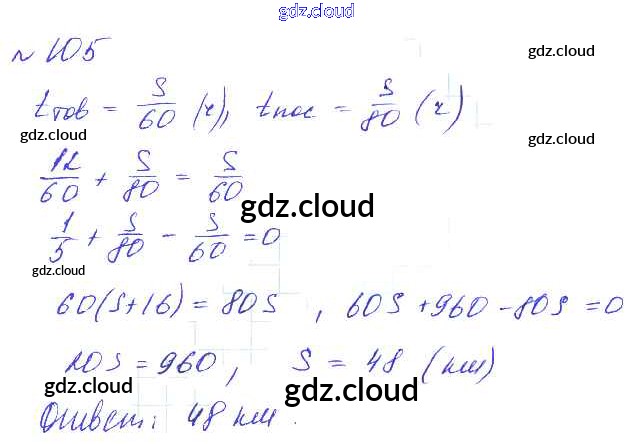 gdz.cloud
№ 105
gdz.cloud
tтов = S/60 (ч), tпас = S/80 (ч)
gdz.cloud
gdz.cloud
12/60 + S/80 = S/60
gdz.cloud
1/5 + S/80 - S/60 = 0
gdz.cloud
60(S+16) = 80S , 60S +960 -80S =0
20S = 960 , S = 48 (км)
gdz.cloud
gdz.cloud
Ответ: 48 км.